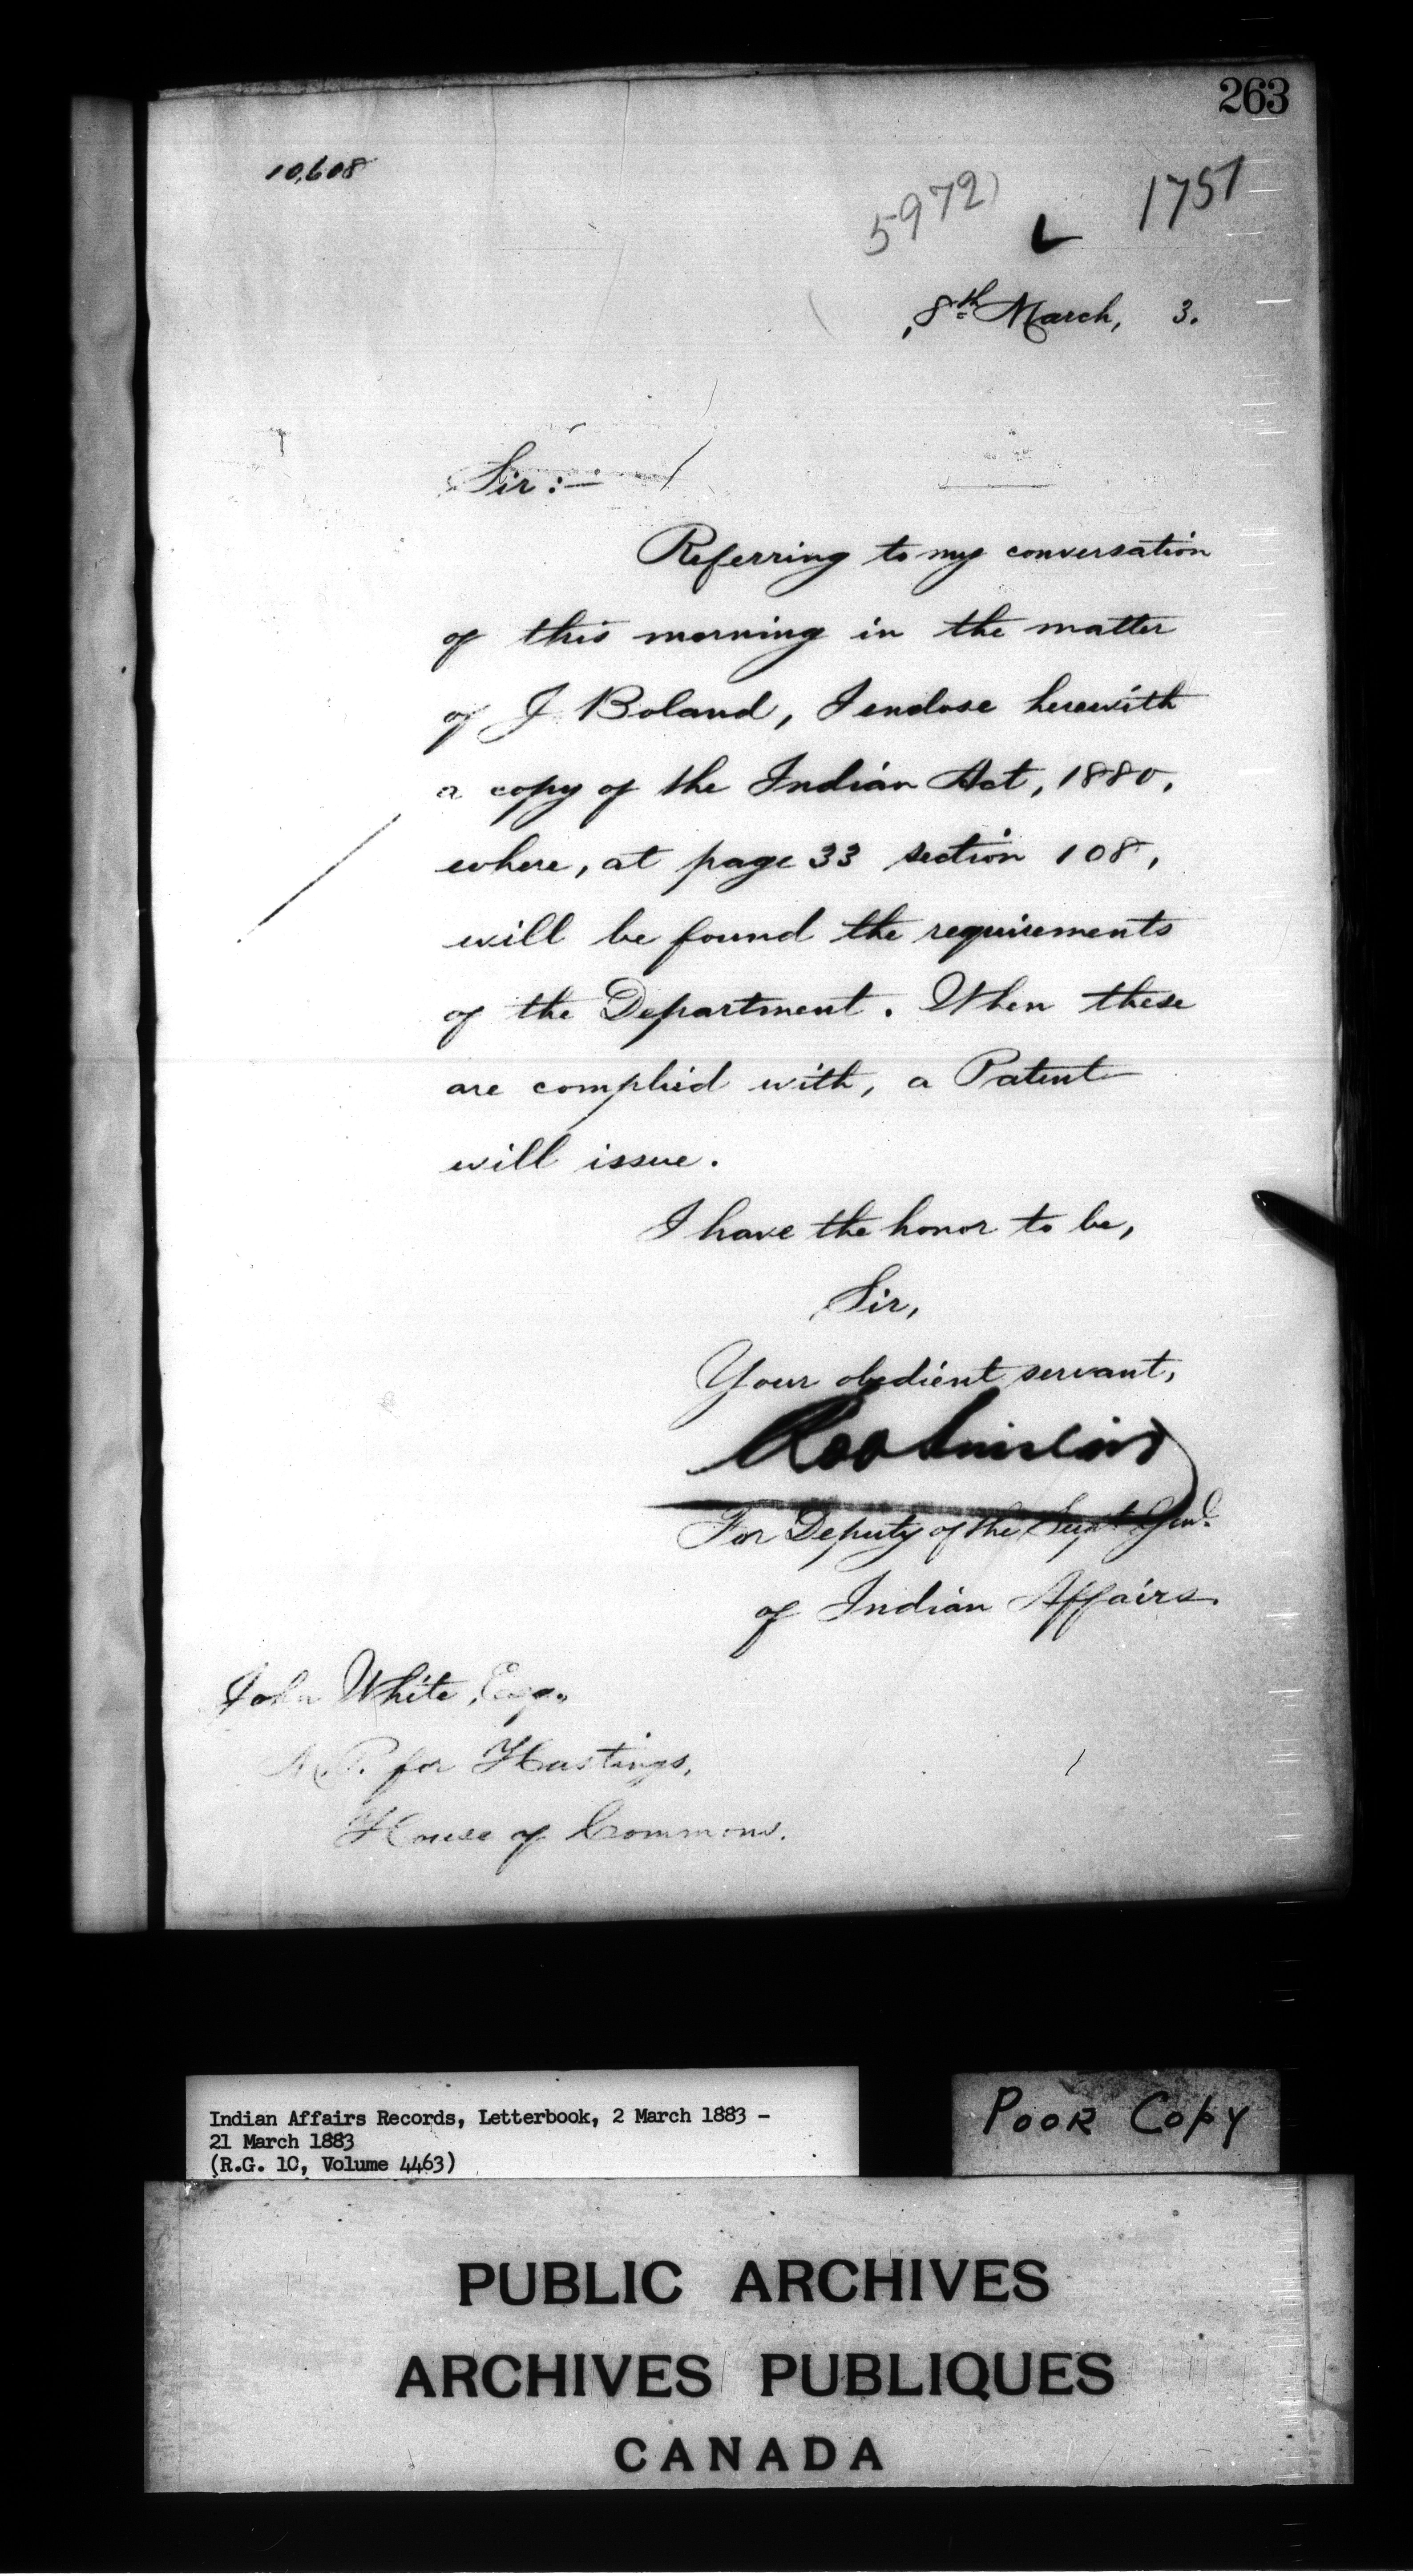 263
10,608
5972)
L 1751
8th March, 3.
Sir:—
Referring to my conversation
of this morning in the matter
of J. Boland, I enclose herewith
a copy of the Indian Act, 1880,
where, at page 33 section 108,
will be found the requirements
of the Department. When these
are complied with, a Patent
will issue.
I have the honor to be,
Sir,
Your obedient servant,
For Deputy of the Supt Genl.
of Indian Affairs.
John White, Esq.,
M.P. for Hastings,
House of Commons.
Indian Affairs Records, Letterbook, 2 March 1883 -
21 March 1883
(R.G. 10, Volume 4463)
POOR COPY
PUBLIC ARCHIVES
ARCHIVES PUBLIQUES
CANADA